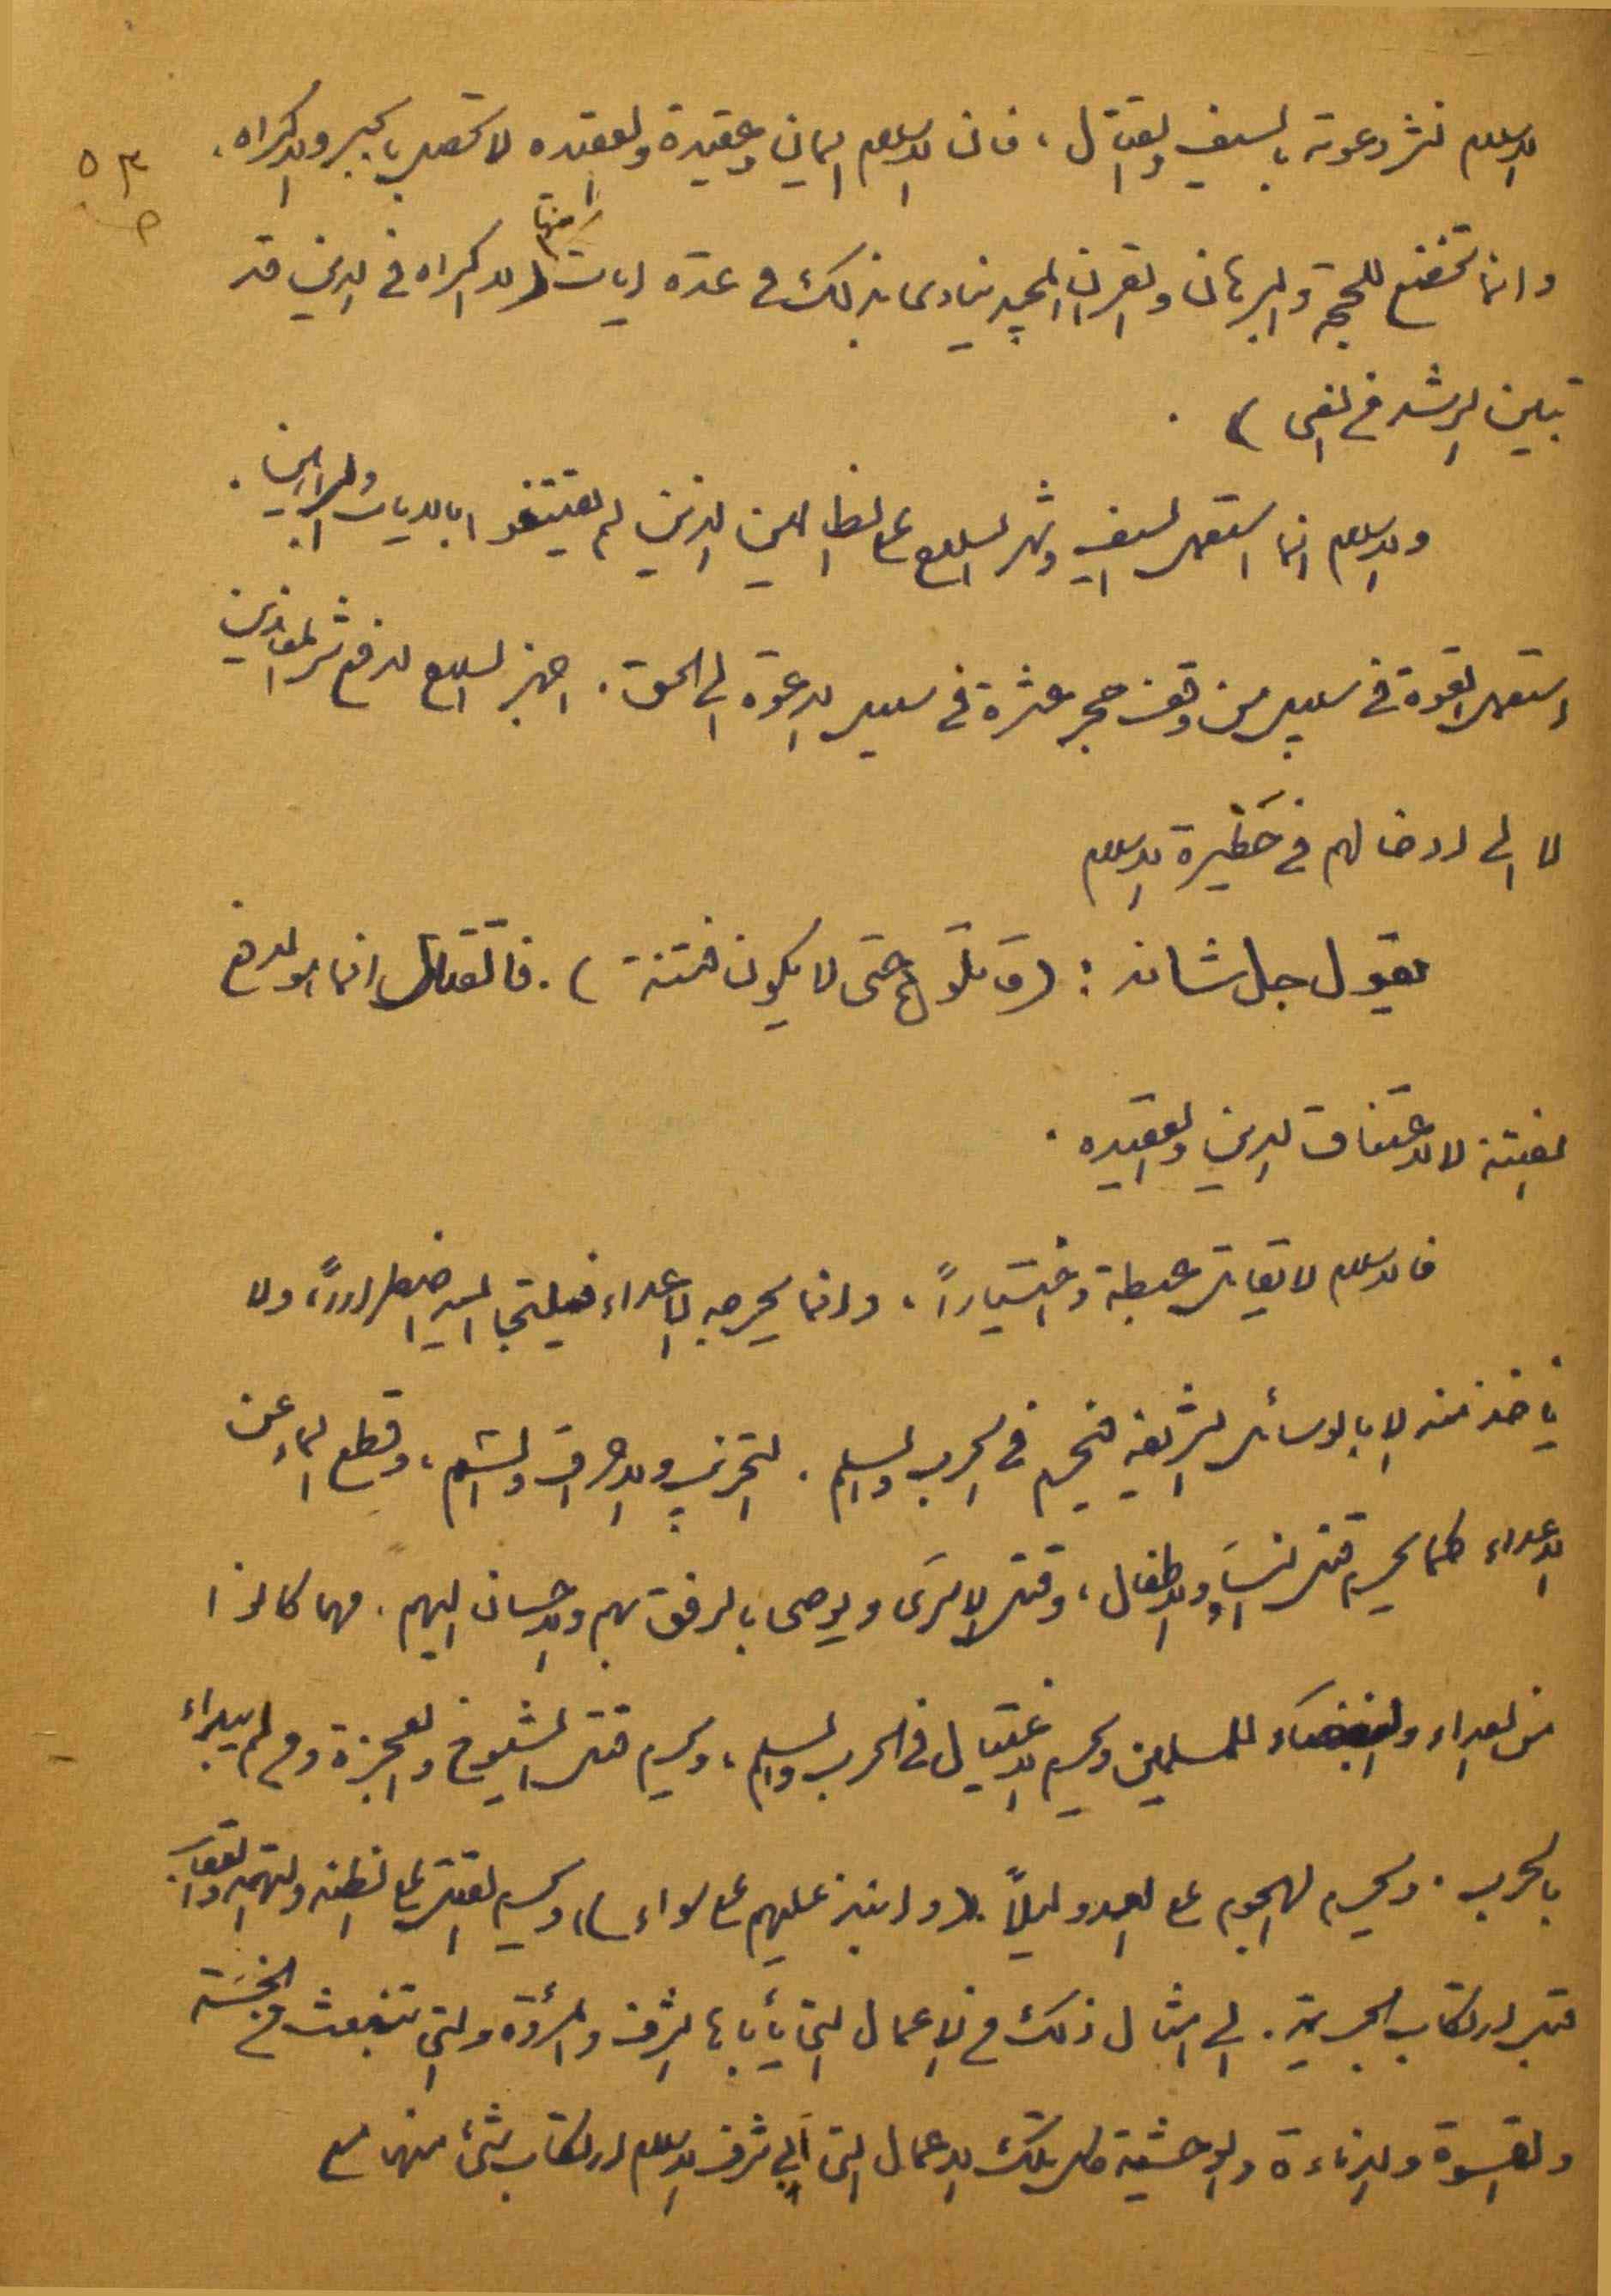 الاسلام نشر دعوته بالسيف والقتال ، فان الاسلام ايمان وعقيدة والعقيده لا تحصل بالجبر والاكراه .
٥٣
ص
وانما تخضع للحجة والبرهان والقران المجيد ينادى بذلك في عدة ايات منها ( لا اكراه في الدين قد
تبين الرشد من الغى ) .
والاسلام انما استعمل السيف وشهر السلاح على الظالمين الذين لم يقتنعوا بالايات والبراهين .
إستعمل القوة في سبيل من وقف حجر عثرة في سبيل الدعوة الى الحق . اجهز السلاح لدفع شر المعاندين
لا الى ادخالهم في حَظيرة الاسلام
يقول جل شانه : ( قاتلوهم حتى لا يكون فتنة ) . فالقتال انما هو لدفع
الفتنة لا لاعتناق الدين والعقيده .
فالاسلام لا يقاتل عبطة واختياراً ، وانما يحرجه الاعداء فيلتجا اليه اضطراراً ، ولا
ياخذ منه الا بالوسائل الشريفه فيحرم في الحرب والسلم . التخريب والاحراق والسم ، وقطع الماء عن
الاعداء كما يحرم قتل النسَاء والاطفال ، وقتل الاسرَى ويوصى بالرفق بهم والاحسان اليهم . مهما كانوا
من العداء والبغضَاء للمسلمين ويحرم الاغتيال في الحرب والسلم ، ويحرم قتل الشيوخ والعجزة ومن لم يبداء
بالحرب . ويحرم الهجوم على العدو ليلاً ( وانبذ عليهم على سواء ) ، ويحرم القتل على الظنه والتهمه والعقاب
قبل ارتكاب الجريمة . الى امثال ذلك من الاعمال التي يأباها الشرف والمرُؤة والتي تنبعث من الخسَة
والقسوة والدناءة والوحشية كل تلك الاعمال التي أبى شرف الاسلام ارتكاب شئ منها مع